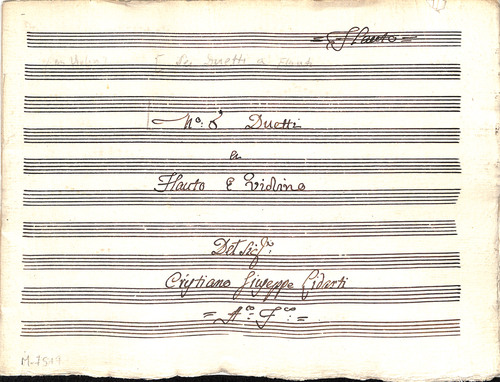 = Flauto =
Sei Duetti a Flauto
No: 6 Duetti
a
Flauto E Violino
Del Sigr:
Cristiano Giuseppe Lidarti
= A:co F:co =
M-7519